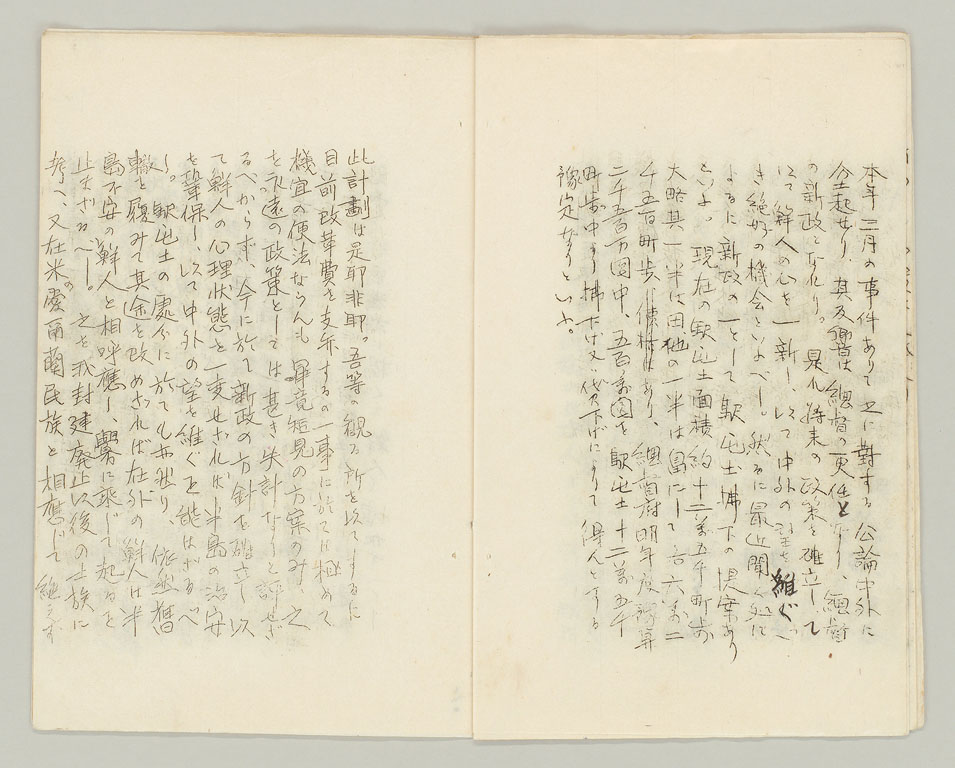 本年三月の事件ありて之に對する公論中外に
起せり、其反響は總督の更任となり、總督
の新政となれり。是れ将来の政策を確立して
以て鮮人の心を一新し、以て中外の望を維ぐべ
き絶好の機会といふべし。然るに最近聞く処に
よるに新政の一として駅屯土拂下の提案あり
といふ。現在の駅屯土面積約十二萬五千町歩
大略其一半は田他の一半は畠にして
千五百町歩価格あり、總督府明年度豫算
二千五百万圓中、五百萬圓を駅屯土十二萬五千
町歩中より拂下げ又は貸下げによりて得んとする
豫定なりといふ。
此計劃は是耶非耶。吾等の観る所を以てするに
目前改革費を支弁するの一事に於ては極めて
機宜の便法ならんも畢竟短見の方案のみ、之
を永遠の政策としては甚しき失計なりと評せざ
るべからず、今に於て新政の方針を確立し以
て鮮人の心理状態を一変せざれば半島の治安
を鞏保し、以て中外の望を維ぐを能はざるべ
し。駅屯土の處分に於ても亦然り、依然舊
轍を履みて其余を改めざれば在外の鮮人は半
島不安の鮮人と相呼應し、釁に乗じて起ると
止まざるべし。之を我封建廃止以後の士族に
考へ、又在米の愛爾蘭民族と相應じて絶えず